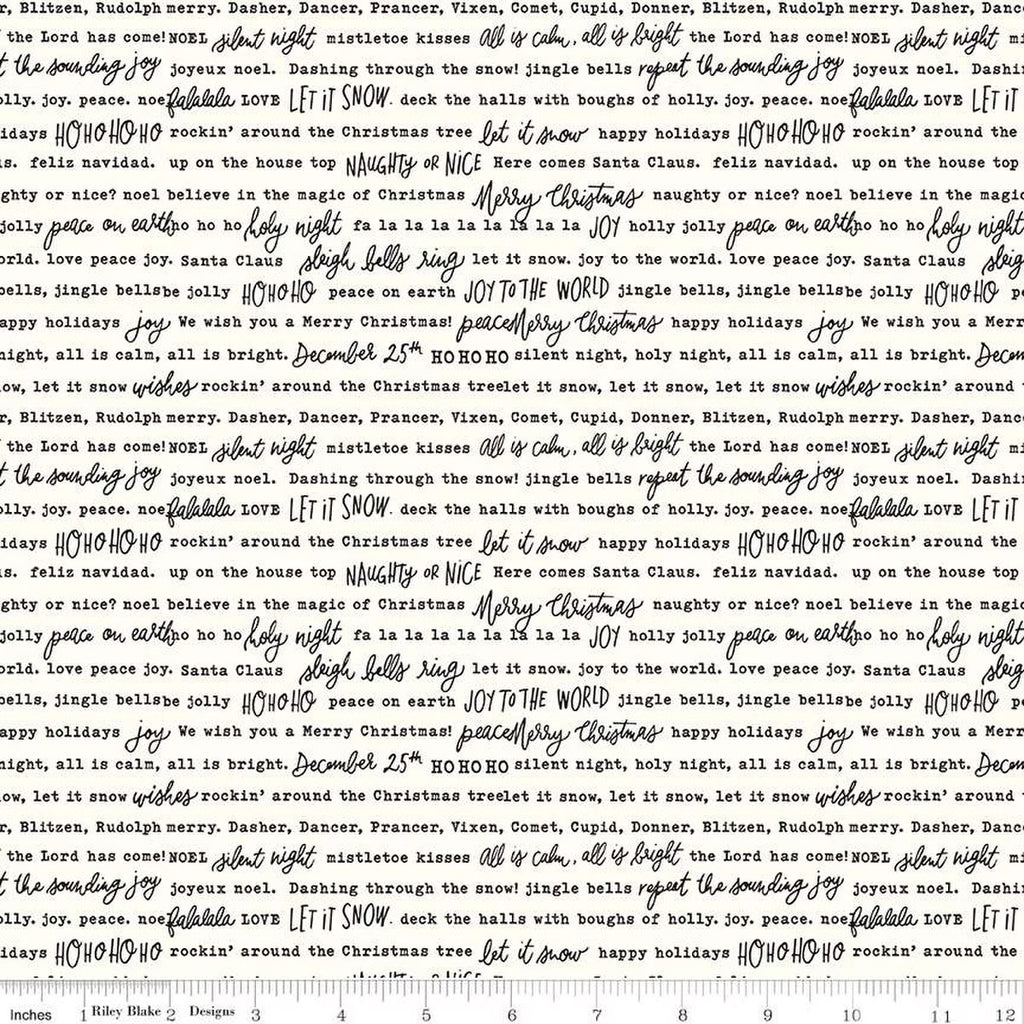 r, Blitzen, Rudolph merry. Dasher, Dancer, Prancer, Vixen, Comet, Cupid, Donner, Blitzen, Rudolph merry. Dasher, Danc
the Lord has come! NOEL silent night mistletoe kisses All is calm, all is bright the Lord has come! NOEL silent night mi
t the sounding joy joyeux noel. Dashing through the snow! jingle bells repeat the sounding joy joyeux noel. Dashi
olly. joy. peace. noe falalala LOVE LET iT SNOW. deck the halls with boughs of holly. joy. peace. noe falalala LOVE LET iT
idays HOHOHOHO rockin' around the Christmas tree let it snow happy holidays HOHOHOHO rockin' around the
s. feliz navidad. up on the house top NAUGHTY OR NiCE Here comes Santa Claus. feliz navidad. up on the house top
ghty or nice? noel believe in the magic of Christmas Merry Christmas naughty or nice? noel believe in the magic
jolly peace on earth no ho ho holy night fa la la la la la la la la JOY holly jolly peace on earth no ho ho holy night
orld. love peace joy. Santa Claus sleigh bells ring let it snow. joy to the world. love peace joy. Santa Claus sleig
bells, jingle bells be jolly HOHOHO peace on earth JOY TO THE WORLD jingle bells, jingle bells be jolly HOHOHO pe
appy holidays joy We wish you a Merry Christmas! peace Merry Christmas happy holidays joy We wish you a Merr
night, all is calm, all is bright. December 25th HO HO HO silent night, holy night, all is calm, all is bright. Decem
ow, let it snow wishes rockin' around the Christmas tree let it snow, let it snow, let it snow wishes rockin' around
r, Blitzen, Rudolph merry. Dasher, Dancer, Prancer, Vixen, Comet, Cupid, Donner, Blitzen, Rudolph merry. Dasher, Danc
the Lord has come! NOEL silent night mistletoe kisses All is calm, all is bright the Lord has come! NOEL silent night mi
t the sounding joy joyeux noel. Dashing through the snow! jingle bells repeat the sounding joy joyeux noel. Dashi
olly. joy. peace. noe falalala LOVE LET iT SNOW. deck the halls with boughs of holly. joy. peace. noe falalala LOVE LET iT
idays HOHOHOHO rockin' around the Christmas tree let it snow happy holidays HOHOHOHO rockin' around the
s. feliz navidad. up on the house top NAUGHTY OR NiCE Here comes Santa Claus. feliz navidad. up on the house top
ghty or nice? noel believe in the magic of Christmas Merry Christmas naughty or nice? noel believe in the magic
jolly peace on earth no ho ho holy night fa la la la la la la la la JOY holly jolly peace on earth no ho ho holy night
orld. love peace joy. Santa Claus sleigh bells ring let it snow. joy to the world. love peace joy. Santa Claus sleig
bells, jingle bells be jolly HOHOHO peace on earth JOY TO THE WORLD jingle bells, jingle bells be jolly HOHOHO pe
appy holidays joy We wish you a Merry Christmas! peace Merry Christmas happy holidays joy We wish you a Merr
night, all is calm, all is bright. December 25th HO HO HO silent night, holy night, all is calm, all is bright. Decem
ow, let it snow wishes rockin' around the Christmas tree let it snow, let it snow, let it snow wishes rockin' around
r, Blitzen, Rudolph merry. Dasher, Dancer, Prancer, Vixen, Comet, Cupid, Donner, Blitzen, Rudolph merry. Dasher, Danc
the Lord has come! NOEL silent night mistletoe kisses All is calm, all is bright the Lord has come! NOEL silent night mi
t the sounding joy joyeux noel. Dashing through the snow! jingle bells repeat the sounding joy joyeux noel. Dashi
olly. joy. peace. noe falalala LOVE LET iT SNOW. deck the halls with boughs of holly. joy. peace. noe falalala LOVE LET iT
idays HOHOHOHO rockin' around the Christmas tree let it snow happy holidays HOHOHOHO rockin' around the
Inches 1 Riley Blake 2 Designs 3 4 5 6 7 8 9 10 11 12